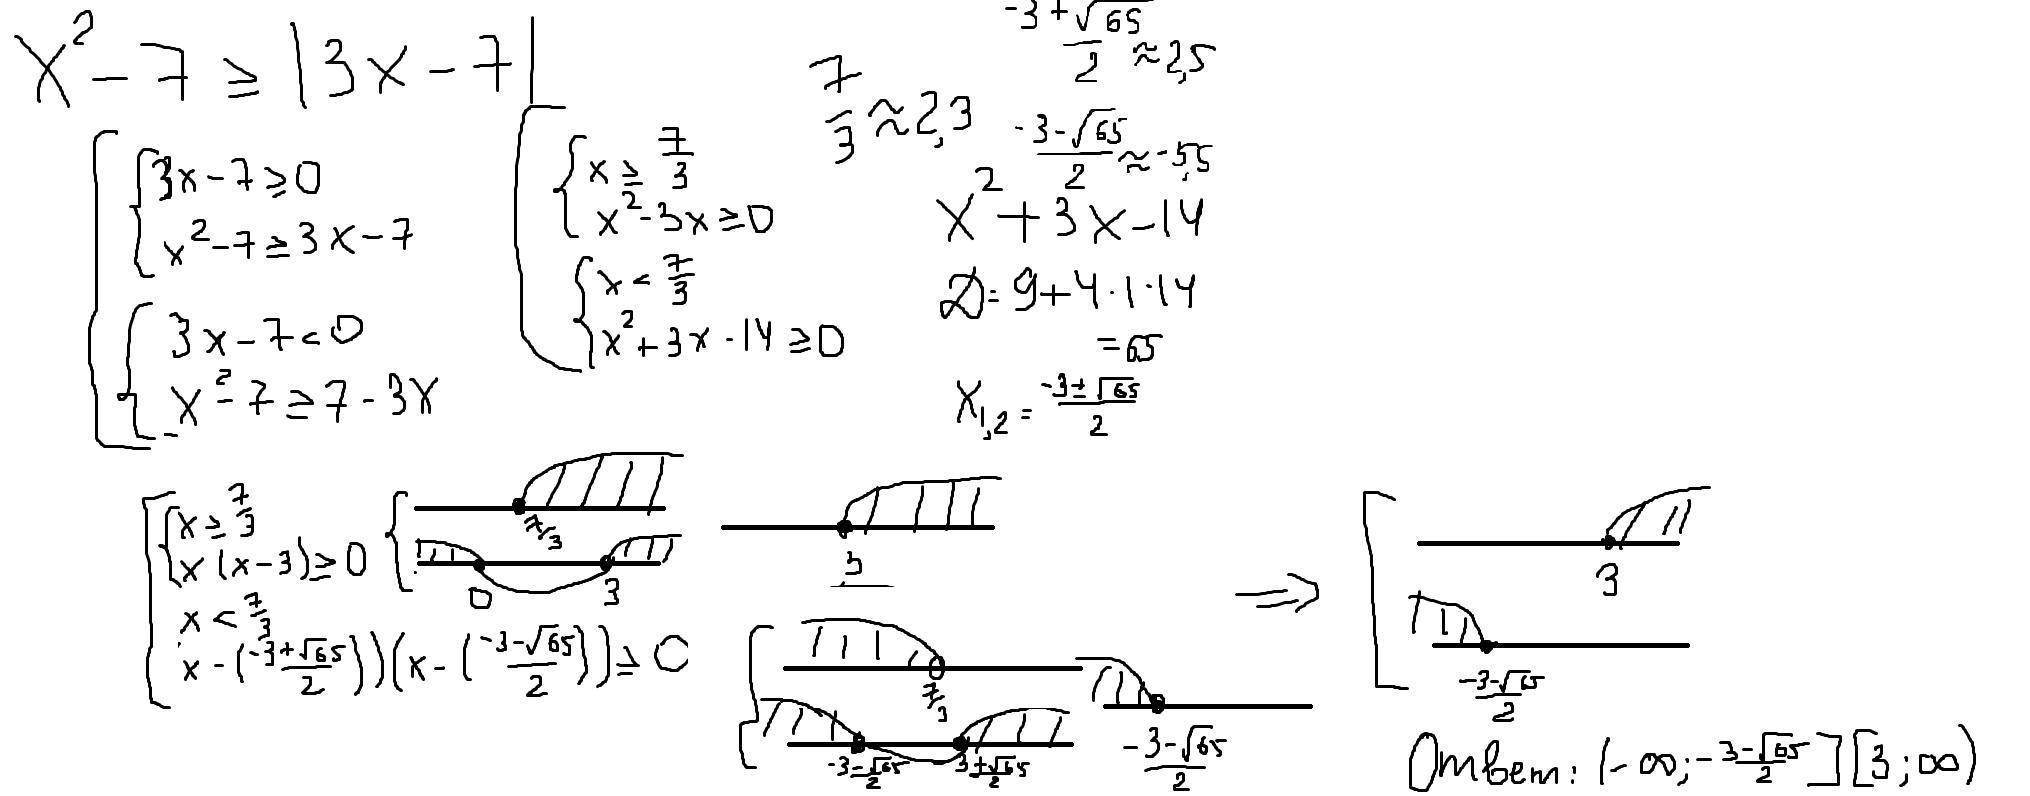 x² - 7 ≥ |3x - 7|
3x - 7 ≥ 0
x² - 7 ≥ 3x - 7
3x - 7 < 0
x² - 7 ≥ 7 - 3x
x ≥ 7/3
x² - 3x ≥ 0
x < 7/3
x² + 3x - 14 ≥ 0
7/3 ≈ 2,3
(-3 + √65)/2 ≈ 2,5
(-3 - √65)/2 ≈ -5,5
x² + 3x - 14
D = 9 + 4 · 1 · 14
= 65
x1,2 = (-3 ± √65)/2
x ≥ 7/3
x (x - 3) ≥ 0
x < 7/3
x - ((-3 + √65)/2))(x - ((-3 - √65)/2)) ≥ 0
7/3
0 3
3
7/3
(-3 - √65)/2 (3 + √65)/2
(-3 - √65)/2
⇒
3
(-3 - √65)/2
Ответ: (-∞; (-3 - √65)/2] [3; ∞)